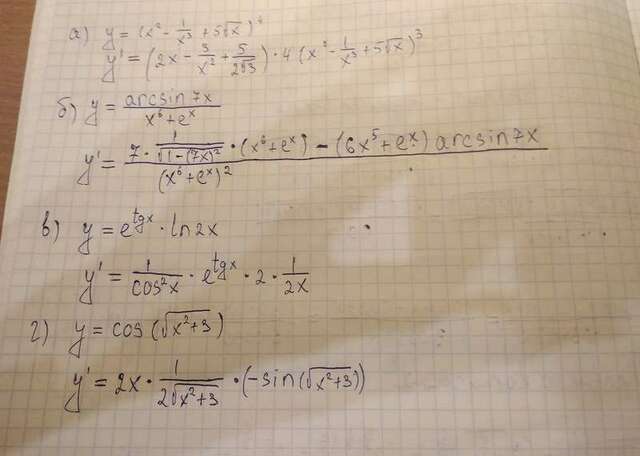 а) y = (x² - 1/x³ + 5√x)⁴
y' = (2x - 3/x² + 5/(2√3)) · 4 (x² - 1/x³ + 5√x)³
б) y = arcsin 7x / (x⁶ + eˣ)
y' = (7 · 1/√(1-(7x)²) · (x⁶ + eˣ) - (6x⁵ + eˣ) arcsin 7x) / (x⁶ + eˣ)²
в) y = e^(tgx) · ln 2x
y' = 1/cos²x · e^(tgx) · 2 · 1/2x
г) y = cos (√(x²+3))
y' = 2x · 1/(2√(x²+3)) · (-sin (√(x²+3)))